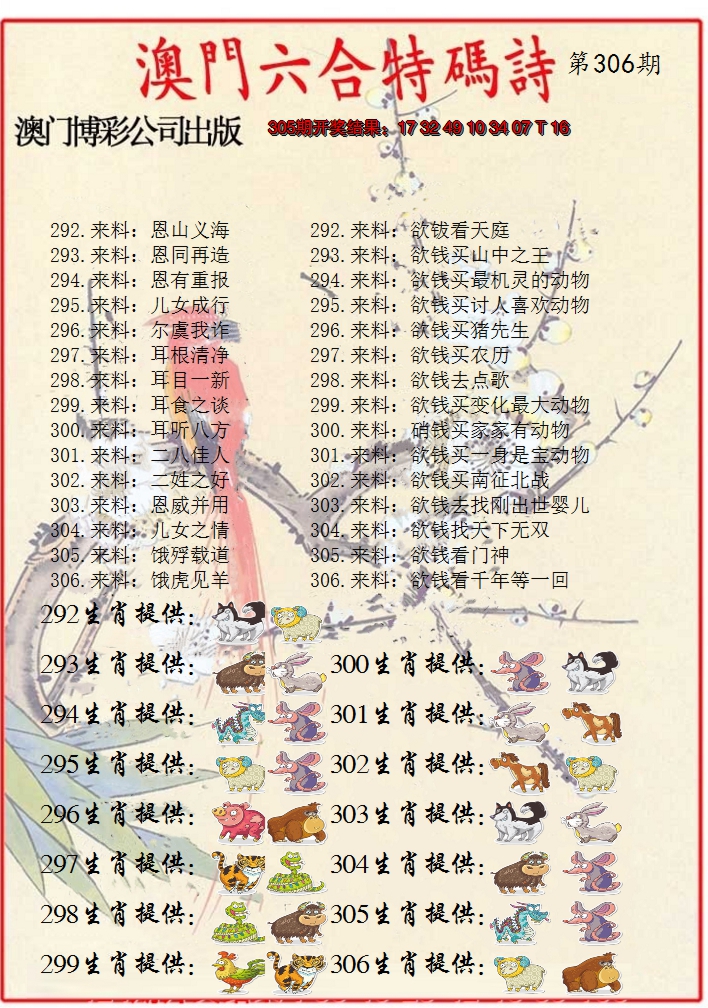 澳門六合特碼詩 第306期
澳门博彩公司出版 305期开奖结果：17 32 49 10 34 07 T 16
292.来料：恩山义海 292.来料：欲钹看天庭
293.来料：恩同再造 293.来料：欲钱买山中之王
294.来料：恩有重报 294.来料：欲钱买最机灵的动物
295.来料：儿女成行 295.来料：欲钱买讨人喜欢动物
296.来料：尔虞我诈 296.来料：欲钱买猪先生
297.来料：耳根清净 297.来料：欲钱买农历
298.来料：耳目一新 298.来料：欲钱去点歌
299.来料：耳食之谈 299.来料：欲钱买变化最大动物
300.来料：耳听八方 300.来料：硝钱买家家有动物
301.来料：二八佳人 301.来料：欲钱买一身是宝动物
302.来料：二姓之好 302.来料：欲钱买南征北战
303.来料：恩威并用 303.来料：欲钱去找刚出世婴儿
304.来料：儿女之情 304.来料：欲钱找天下无双
305.来料：饿殍载道 305.来料：欲钱看门神
306.来料：饿虎见羊 306.来料：欲钱看千年等一回
292生肖提供：
293生肖提供： 300生肖提供：
294生肖提供： 301生肖提供：
295生肖提供： 302生肖提供：
296生肖提供： 303生肖提供：
297生肖提供： 304生肖提供：
298生肖提供： 305生肖提供：
299生肖提供： 306生肖提供：